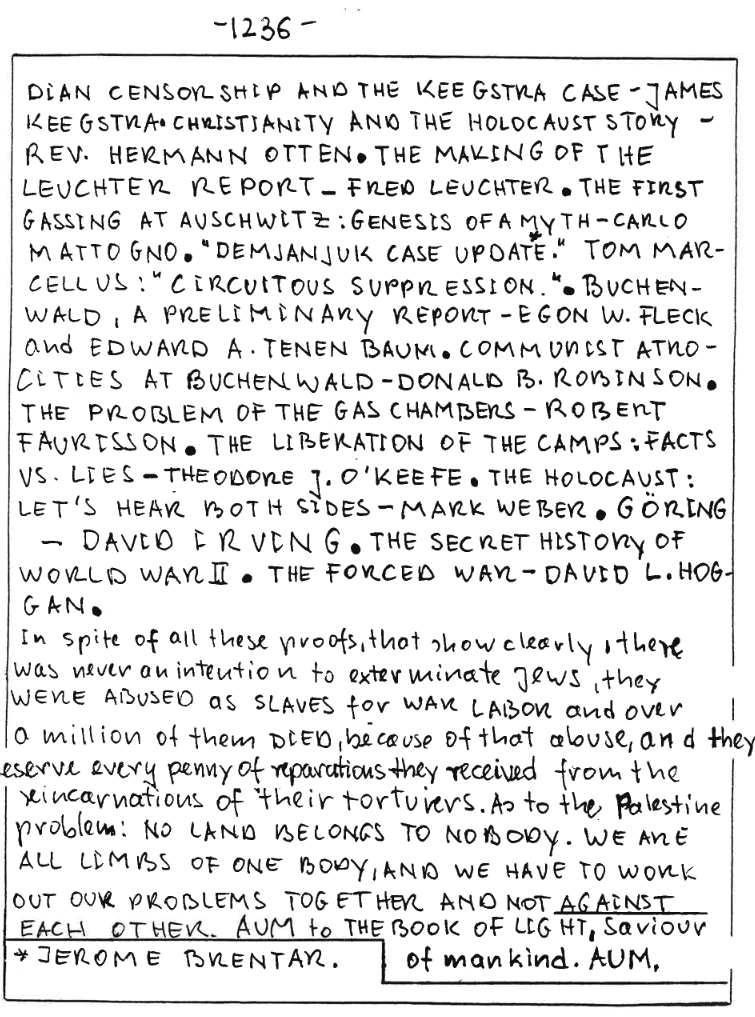 -1236-
DIAN CENSORSHIP AND THE KEEGSTRA CASE - JAMES
KEEGSTRA. CHRISTIANITY AND THE HOLOCAUST STORY -
REV. HERMANN OTTEN. THE MAKING OF THE
LEUCHTER REPORT - FRED LEUCHTER. THE FIRST
GASSING AT AUSCHWITZ: GENESIS OF A MYTH - CARLO
MATTOGNO. "DEMJANJUK CASE UPDATE*." TOM MAR-
CELLUS: "CIRCUITOUS SUPPRESSION.". BUCHEN-
WALD, A PRELIMINARY REPORT - EGON W. FLECK
and EDWARD A. TENENBAUM. COMMUNIST ATRO-
CITIES AT BUCHENWALD - DONALD B. ROBINSON.
THE PROBLEM OF THE GAS CHAMBERS - ROBERT
FAURISSON. THE LIBERATION OF THE CAMPS: FACTS
VS. LIES - THEODORE J. O'KEEFE. THE HOLOCAUST:
LET'S HEAR BOTH SIDES - MARK WEBER. GÖRING
- DAVID IRVING. THE SECRET HISTORY OF
WORLD WAR II. THE FORCED WAR - DAVID L. HOG-
GAN.
In spite of all these proofs, that show clearly, there
was never an intention to exterminate Jews, they
WERE ABUSED as SLAVES for WAR LABOR and over
a million of them DIED, because of that abuse, and they
eserve every penny of reparations they received from the
reincarnations of their torturers. As to the Palestine
problem: NO LAND BELONGS TO NOBODY. WE ARE
ALL LIMBS OF ONE BODY, AND WE HAVE TO WORK
OUT OUR PROBLEMS TOGETHER AND NOT AGAINST
EACH OTHER. AUM to THE BOOK OF LIGHT, Saviour
of mankind. AUM.
* JEROME BRENTAR.